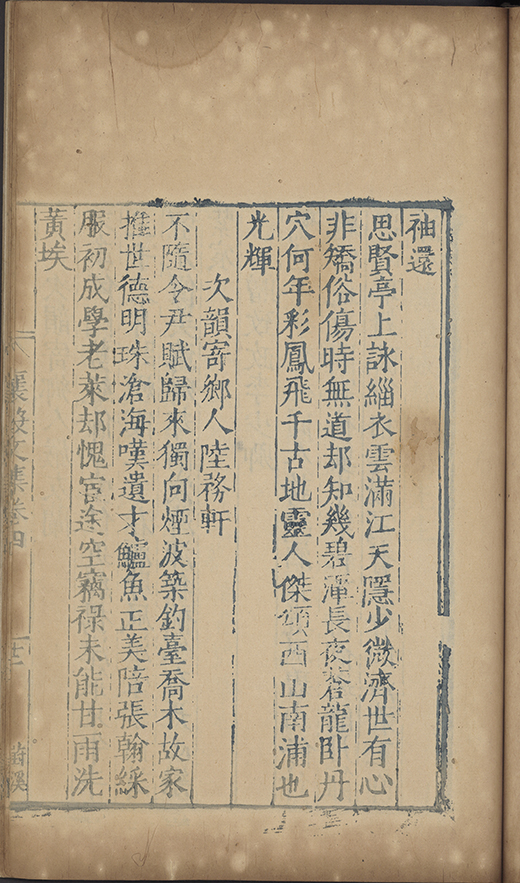 袖還
思賢亭上詠緇衣雲滿江天隱少微濟世有心
非矯俗傷時無道却知幾碧潭長夜蒼龍卧丹
穴何年彩鳳飛千古地靈人傑頌西山南浦也
光輝
次韻寄鄉人陸務軒
不隨令尹賦歸來獨向煙波築釣臺喬木故家
推世德明珠滄海嘆遺才鱸魚正美陪張翰綵
服初成學老萊却愧宦途空竊祿未能甘雨洗
黃埃
襄毅文集卷四